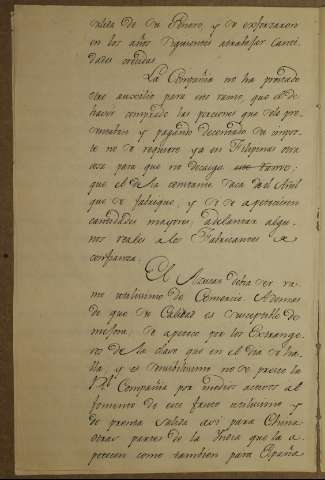 salida de su Genero, y se esforzaron
en los años siguientes atrabajar Canti-
dades crecidas
La Compañia no ha prestado
otro auxilio para este ramo, que el de
haver comprado las porciones que sele pre-
sentaban y pagando decontado su impor-
te no se requiere ya en Filipinas otra
cosa para que no decaiga este ramo;
que el de la constante Saca del Añil
que se fabrique, y si se apetecieren
cantidades mayores, adelantar algu-
nos reales alos Fabricantes de
confianza.
El Azucar debia ser ra-
mo utilisimo de Comercio. Ademas
de que su Calidad es susceptible de
mejora, se aprecia por los Estrange-
ros de la clase que en el dia se ha-
lla, y es sensibilisimo no se preste la
Rl. Compañia por medios activos al
fomento de este fruto utilisimo y
de pronta salida asi para China
otras partes de la India que la a-
petecen como tambien para España